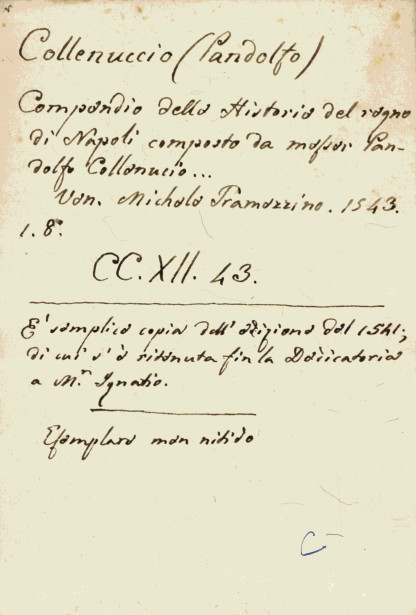 Collenuccio (Pandolfo)
Compendio della Historia del regno
di Napoli composto da messer Pan-
dolfo Collenucio...
Ven. Michele Tramezzino. 1543.
1. 8°.
CC. XII. 43.
E' semplice copia dell' edizione del 1541;
di cui s' è ritenuta fin la Dedicatoria
a M.r Ignatio.
Esemplare men nitido
C